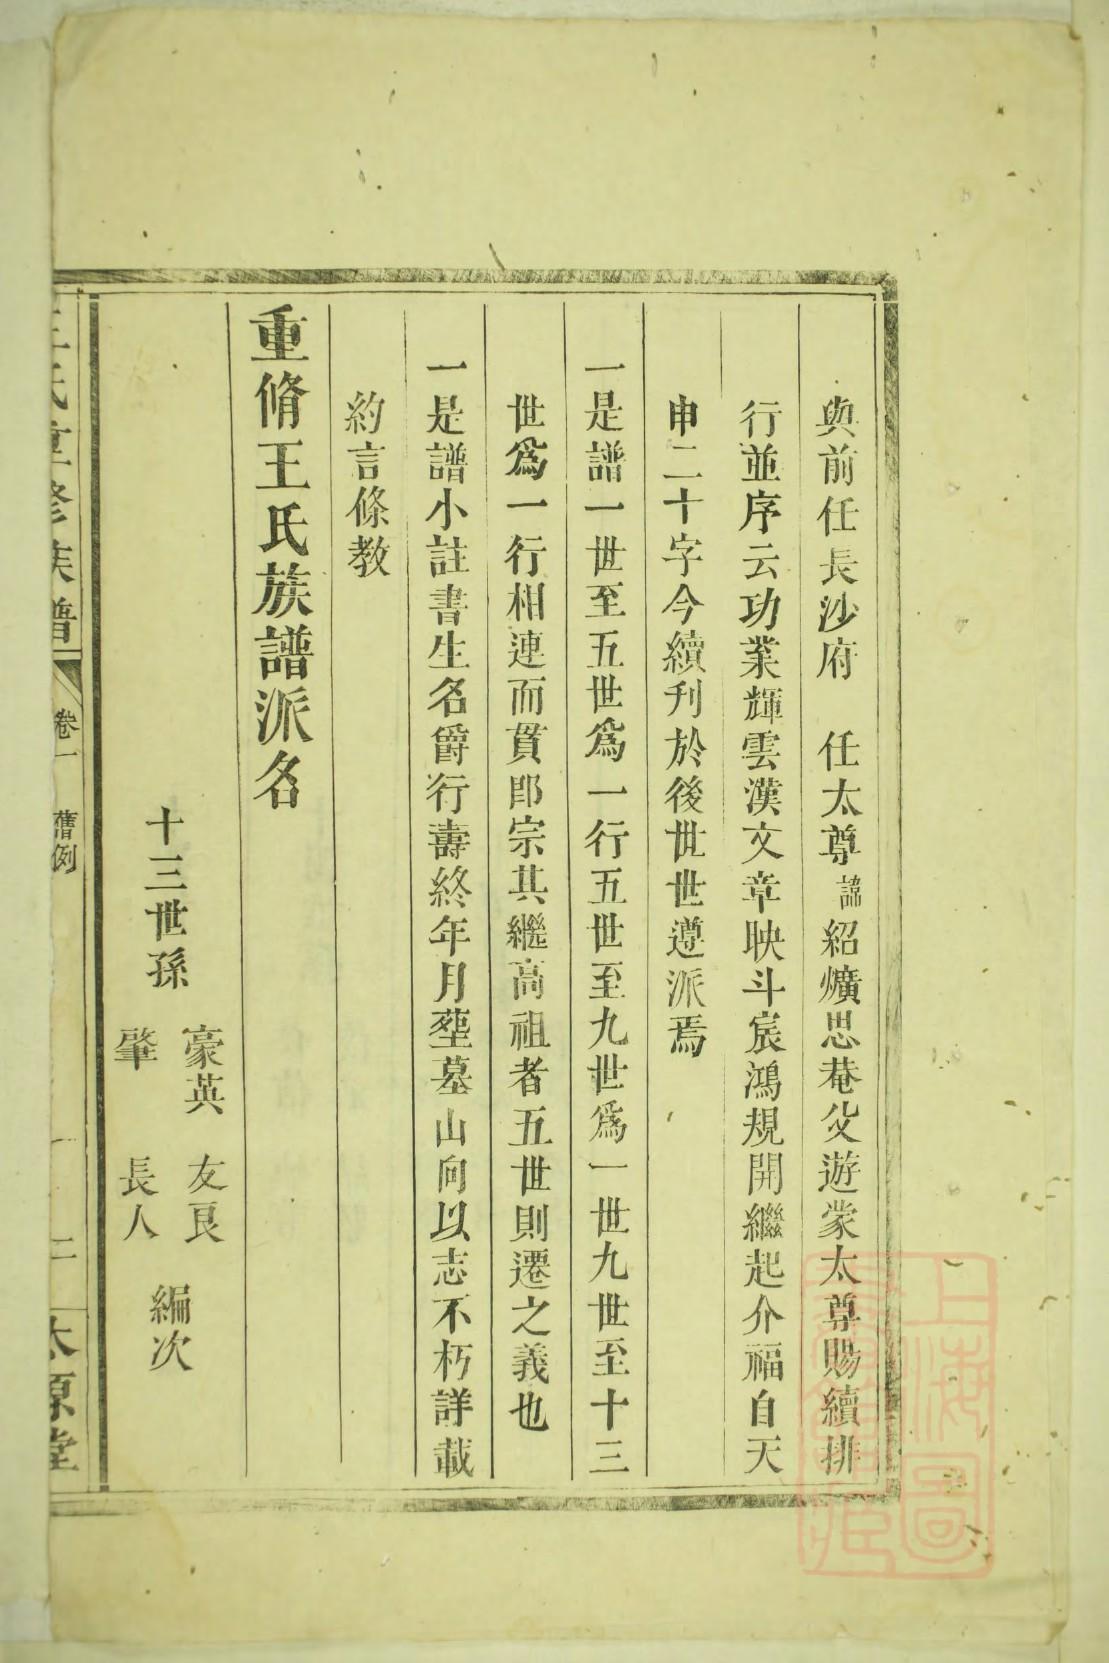 與前任長沙府　任太尊諱紹爌思菴父遊蒙太尊賜續排
行並序云功業輝雲漢文章映斗宸鴻規開繼起介福自天
申二十字今續刊於後世世遵派焉
一是譜一世至五世爲一行五世至九世爲一世九世至十三
世爲一行相連而貫即宗其繼高祖者五世則遷之義也
一是譜小註書生名爵行壽終年月塟墓山向以志不朽詳載
約言條教
重脩王氏族譜派名
十三世孫
豪英　友良
肇　長人
編次
王氏重修族譜
卷一　舊例
二
太原堂
上海圖